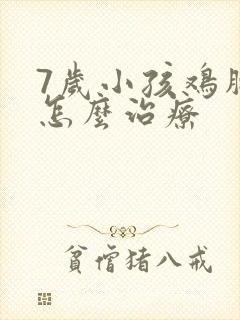 7歲小孩鸡
怎麼治療
貧僧猪八戒